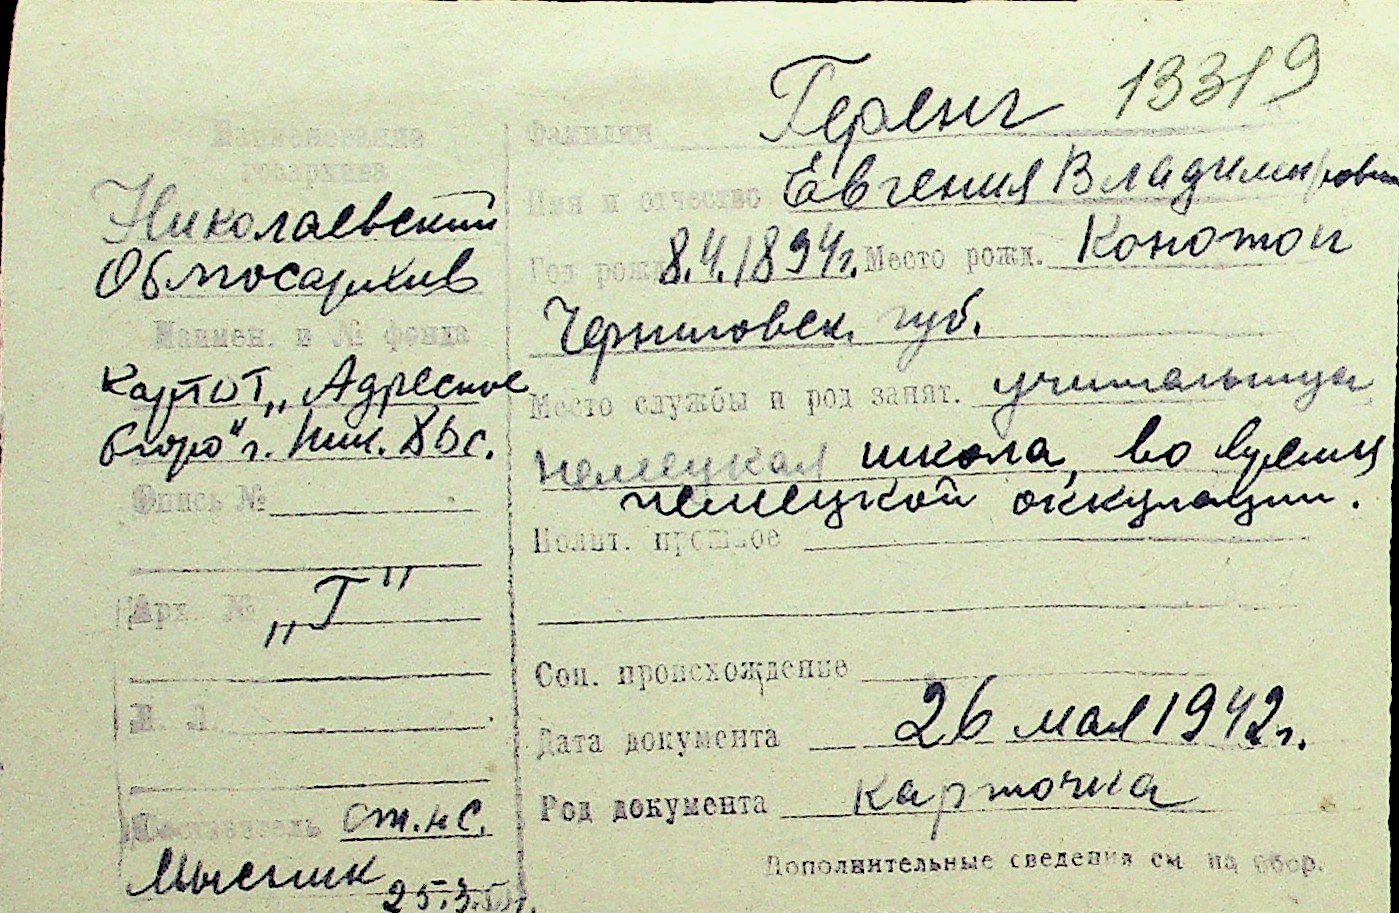 13319
Наименование
госархива
Николаевский
Облгосархив
Наимен. и № фонда
Картот. „Адресное
бюро" г. Ник.
Опись №
Арх. № „Г"
К. Л.
Составитель ст. н с.
Мысник 25.3.
Фамилия Геренг
Имя и отчество Евгения Владимировн
Год рожд. 8.4.1894г. Место рожд. Конотоп
Черниговск. губ.
Место службы и род занят. учительница
немецкая школа, во время
немецкой оккупации.
Полит. прошлое
Соц. происхождение
Дата документа 26 мая 1942г.
Род документа карточка
Дополнительные сведения см. на обор.